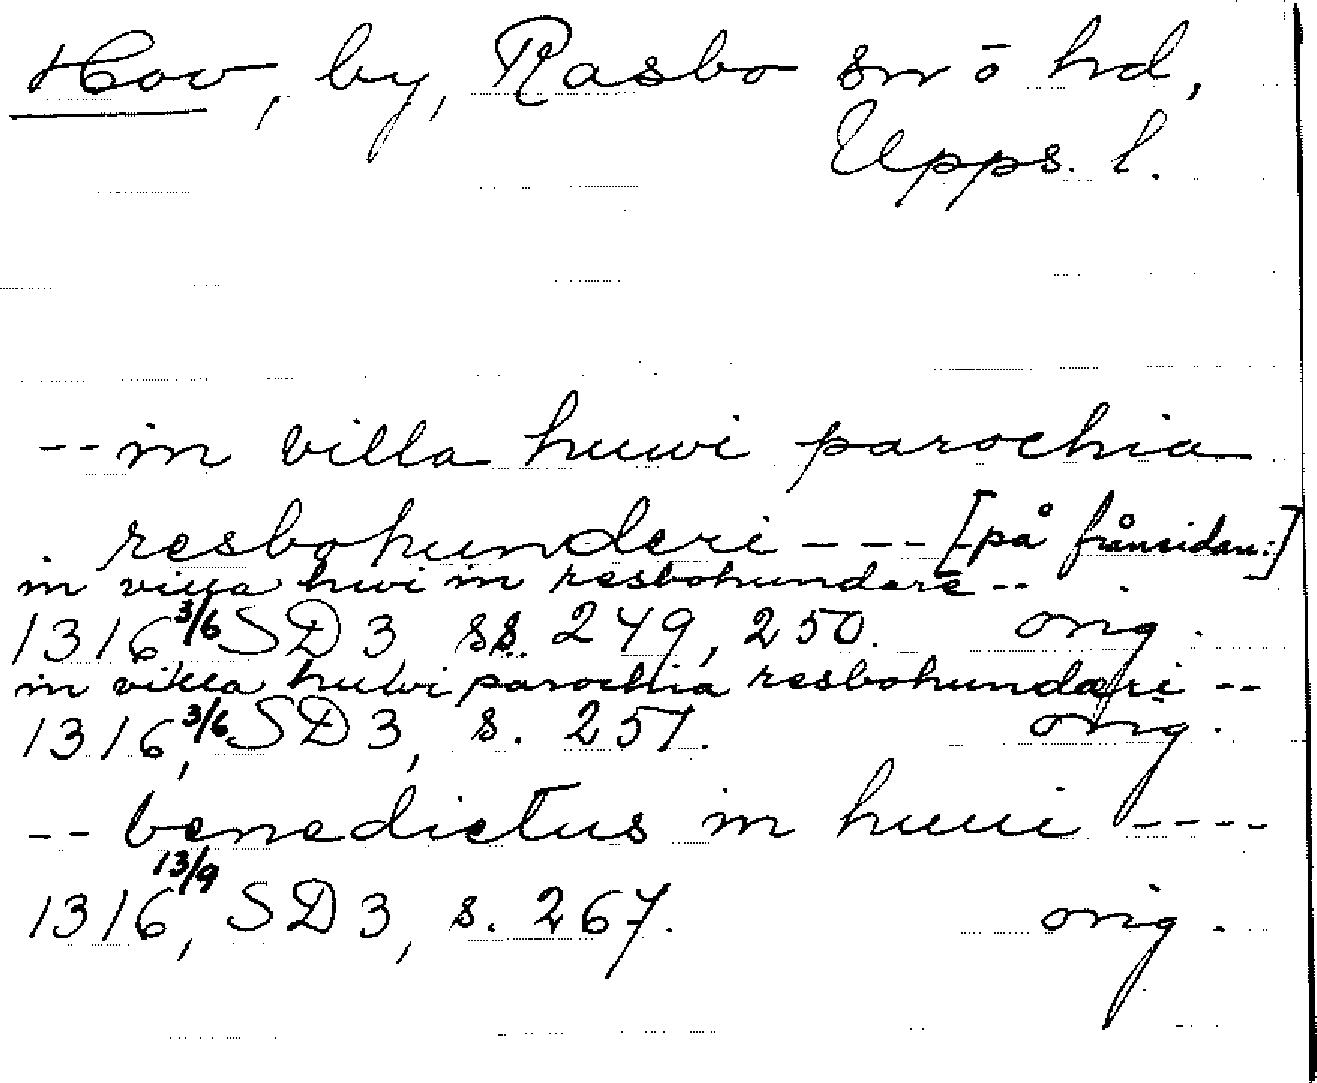 Hov, by, Rasbo sn o hd,
Upps. l.
-- in villa huwi parochia
resbohunderi --- [på frånsidan:]
in villa hwi in resbohundare --
1316 3/6 SD 3 ss. 249, 250. orig.
in villa huwi parochia resbohundæri --
1316, 3/6 SD 3, s. 251. orig.
-- benedictus in huui ----
1316, 13/9 SD 3, s. 267. orig.